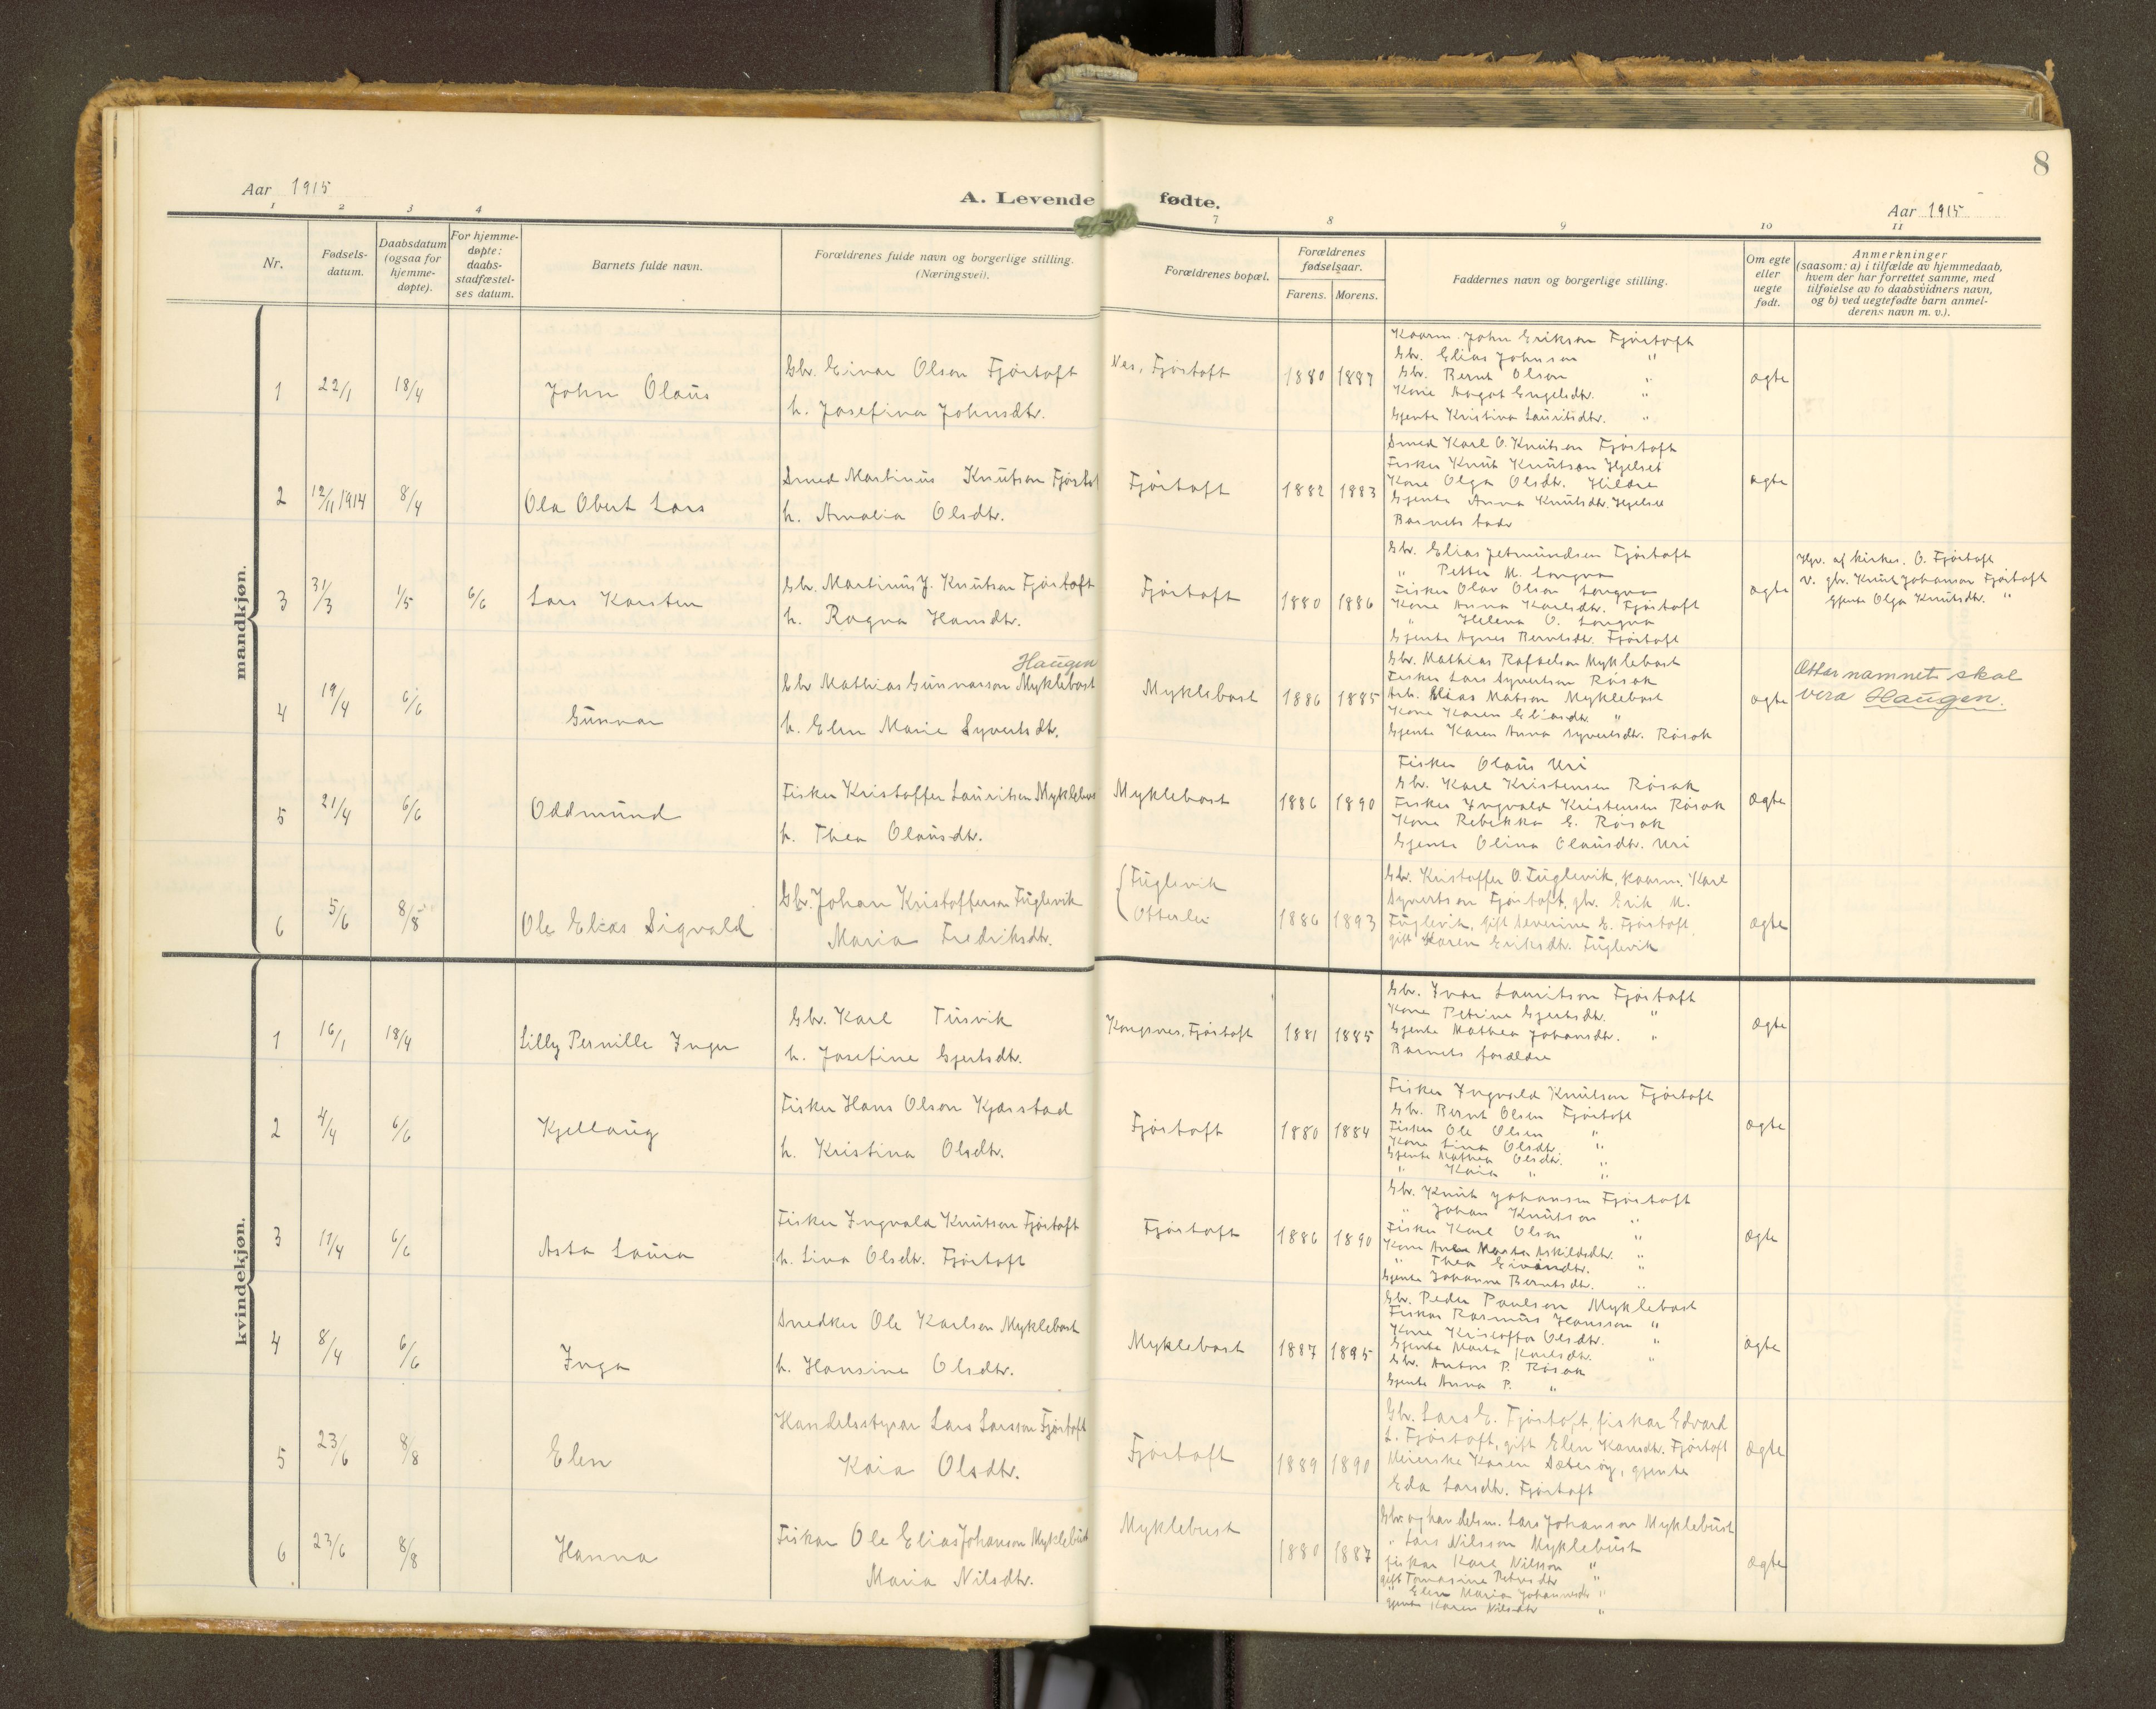 8
Aar 1915
A. Levende fødte.
Aar 1915
1 2 3 4 7 8 9 10 11
Nr.
Fødsels-
datum.
Daabsdatum
(ogsaa for
hjemme-
døpte).
For hjemme-
døpte:
daabs-
stadfæstel-
ses datum.
Barnets fulde navn.
Forældrenes fulde navn og borgerlige stilling.
(Næringsvei).
Forældrenes bopæl.
Forældrenes
fødselsaar.
Farens. Morens.
Faddernes navn og borgerlige stilling.
Om egte
eller
uegte
født.
Anmerkninger
(saasom: a) i tilfælde av hjemmedaab,
hvem der har forrettet samme, med
tilføielse av to daabsvidners navn,
og b) ved uegtefødte barn anmel-
derens navn m. v.).
mandkjøn.
1 22/1 18/4 John Olaus
Gbr. Einar Olsen Fjørtoft
h. Josefina Johnsdtr.
Nes, Fjørtoft 1880 1887
Kaarm. John Erikson Fjørtoft
Gbr. Elias Johnson "
Gbr. Bernt Olson "
Kone Aagot Engelsdtr. "
Gjente Kristina Lauritsdtr. "
ægte
2 12/11 1914 8/4 Ola Obert Lars
Smed Martinus Knutson Fjørtoft
h. Amalia Olsdtr.
Fjørtoft 1882 1883
Smed Karl O. Knutson Fjørtoft
Fisker Knut Knutson Hjelset
Kone Olga Olsdtr. Hildre
Gjente Anna Knutsdtr. Hjelset
Barnets fader
ægte
3 31/3 1/5 6/6 Lars Karsten
Gbr. Martinus J. Knutson Fjørtoft
h. Ragna Hansdtr.
Fjørtoft 1880 1886
Gbr. Elias Jetmundsen Fjørtoft
" Petter M. Longva
Fisker Olav Olson Longva
Kone Anna Karlsdtr. Fjørtoft
" Helena O. Longva
Gjente Agnes Berntsdtr. Fjørtoft
ægte
Hjd. af kirkes. O. Fjørtoft
v. gbr. Knut Johanson Fjørtoft
Gjente Olga Knutsdtr. "
4 19/4 6/6 Gunnar
Haugen
Gbr Mathias Gunnarson Myklebost
h. Elen Marie Syvertsdtr.
Myklebost 1886 1885
Gbr. Mathias Rafaelson Myklebost
Fisker Lars Syvertson Røsok
Arb. Elias Matson Myklebost
Kone Karen Eliasdtr. "
Gjente Karen Anna Syvertsdtr. Røsok
ægte
Ættarnamnet skal
vera Haugen.
5 21/4 6/6 Oddmund
Fisker Kristoffer Lauritsen Myklebost
h. Thea Olausdtr.
Myklebost 1886 1890
Fisker Olaus Uri
Gbr. Karl Kristensen Røsok
Fisker Ingvald Kristensen Røsok
Kone Rebekka E. Røsok
Gjente Olina Olausdtr. Uri
ægte
6 5/6 8/8 Ole Elias Sigvald
Gbr. Johan Kristofferson Fuglevik
Maria Fredriksdtr.
Fuglevik
Otterlei
1886 1893
Gbr. Kristoffer O. Fuglevik, kaarm. Karl
Syvertson Fjørtoft, gbr. Erik M.
Fuglevik, gift Severine E. Fjørtoft,
gift Karen Eriksdtr. Fuglevik
ægte
kvindekjøn.
1 16/1 18/4 Lilly Pernille Inger
Gbr. Karl Tusvik
h. Josefine Gjertsdtr.
Kongsnes, Fjørtoft 1881 1885
Gbr. Ivar Lauritson Fjørtoft
Kone Petrine Gjertsdtr. "
Gjente Mathea Johansdtr. "
Barnets forældre
ægte
2 4/4 6/6 Kjellaug
Fisker Hans Olson Kjærstad
h. Kristina Olsdtr.
Fjørtoft 1880 1884
Fisker Ingvald Knutson Fjørtoft
Gbr. Bernt Olsen Fjørtoft
Fisker Ole Olsen "
Kone Lina Olsdtr. "
Gjente Mathea Olsdtr. "
" Kaia " "
ægte
3 17/4 6/6 Asta Laura
Fisker Ingvald Knutson Fjørtoft
h. Lina Olsdtr. Fjørtoft
Fjørtoft 1886 1890
Gbr. Knut Johansen Fjørtoft
" Johan Knutson "
Fisker Karl Olson "
Kone Anna Marta Askildsdtr. "
" Thea Einarsdtr. "
Gjente Johanna Berntsdtr. "
ægte
4 8/4 6/6 Inga
Snedker Ole Karlsen Myklebost
h. Hansine Olsdtr.
Myklebost 1887 1895
Gbr. Peder Paulson Myklebost
Fisker Rasmus Hansson "
Kone Kristoffa Olsdtr. "
Gjente Marta Karlsdtr. "
Gbr. Anton P. Røsok
Gjente Anna P. "
ægte
5 23/6 8/8 Elen
Handelsstyrar Lars Larsson Fjørtoft
Kaia Olsdtr.
Fjørtoft 1889 1890
Gbr. Lars E. Fjørtoft, fiskar Edvard
L. Fjørtoft, gift Elen Hansdtr. Fjørtoft
Meierske Karen Sæterøy, gjente
Eda Larsdtr. Fjørtoft
ægte
6 23/6 8/8 Hanna
Fiskar Ole Elias Johanson Myklebust
Maria Nilsdtr.
Myklebust 1880 1887
Gbr. og handelsm. Lars Johanson Myklebust
" Lars Nilsson Myklebust
fiskar Karl Nilsson "
gift Tomasine Petersdtr "
" Elen Maria Johannesdtr "
gjente Karen Nilsdtr "
ægte